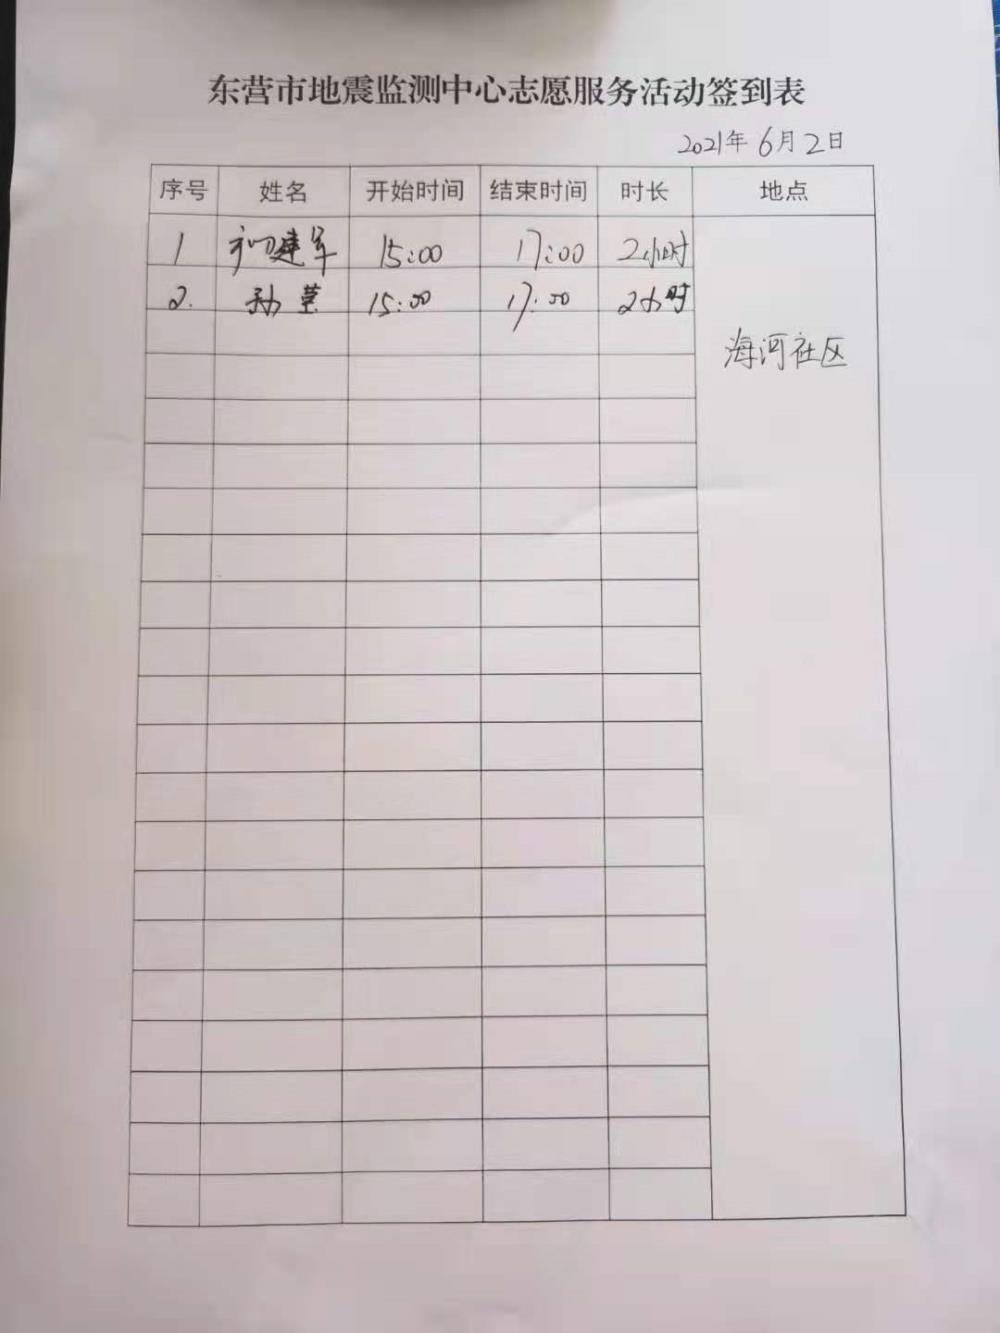 东营市地震监测中心志愿服务活动签到表
2021年6月2日
序号 姓名 开始时间 结束时间 时长 地点
1 建军 15:00 17:00 2小时
2. 孙莹 15:00 17:00 2小时
海河社区